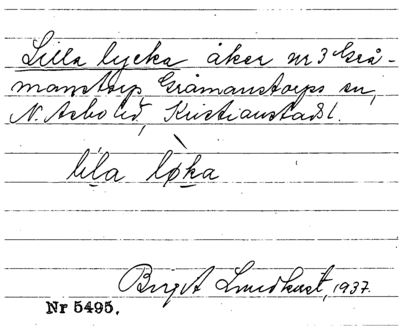 Lilla lycka åker nr 3 Grå-
manstorp, Gråmanstorps sn,
N. Åsbo hd, Kristianstads l.
lila løka
Birgit Lundkvist, 1937.
Nr 5495.